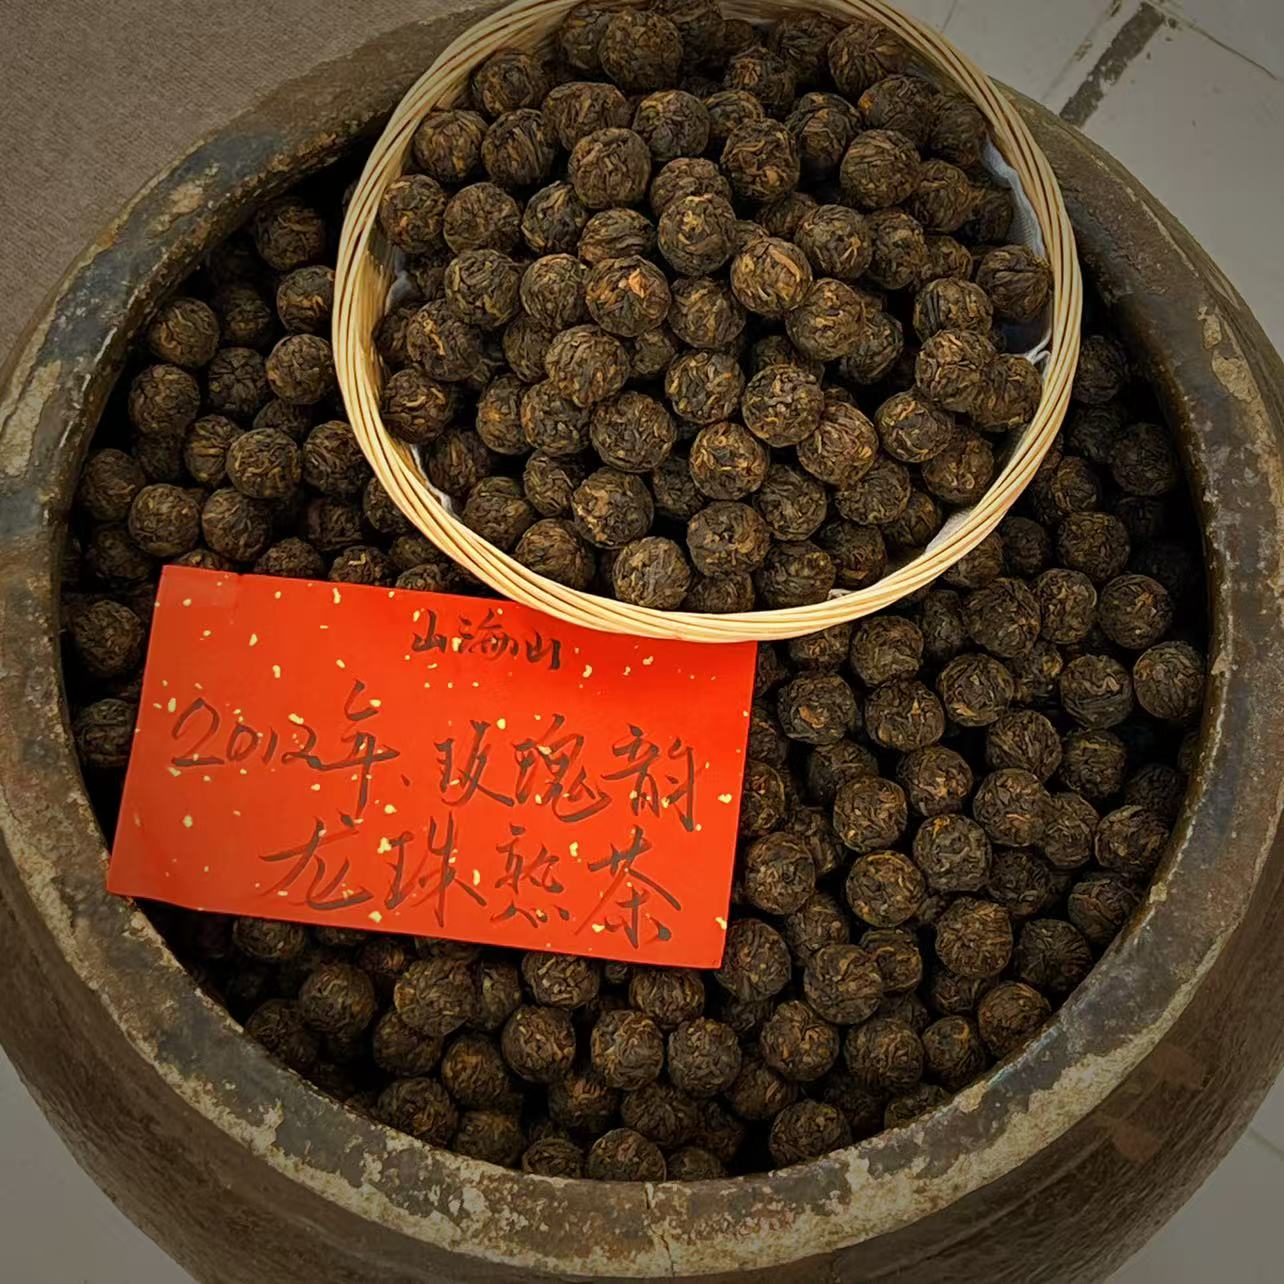 山海山
2012年、玫瑰韵
龙珠熟茶